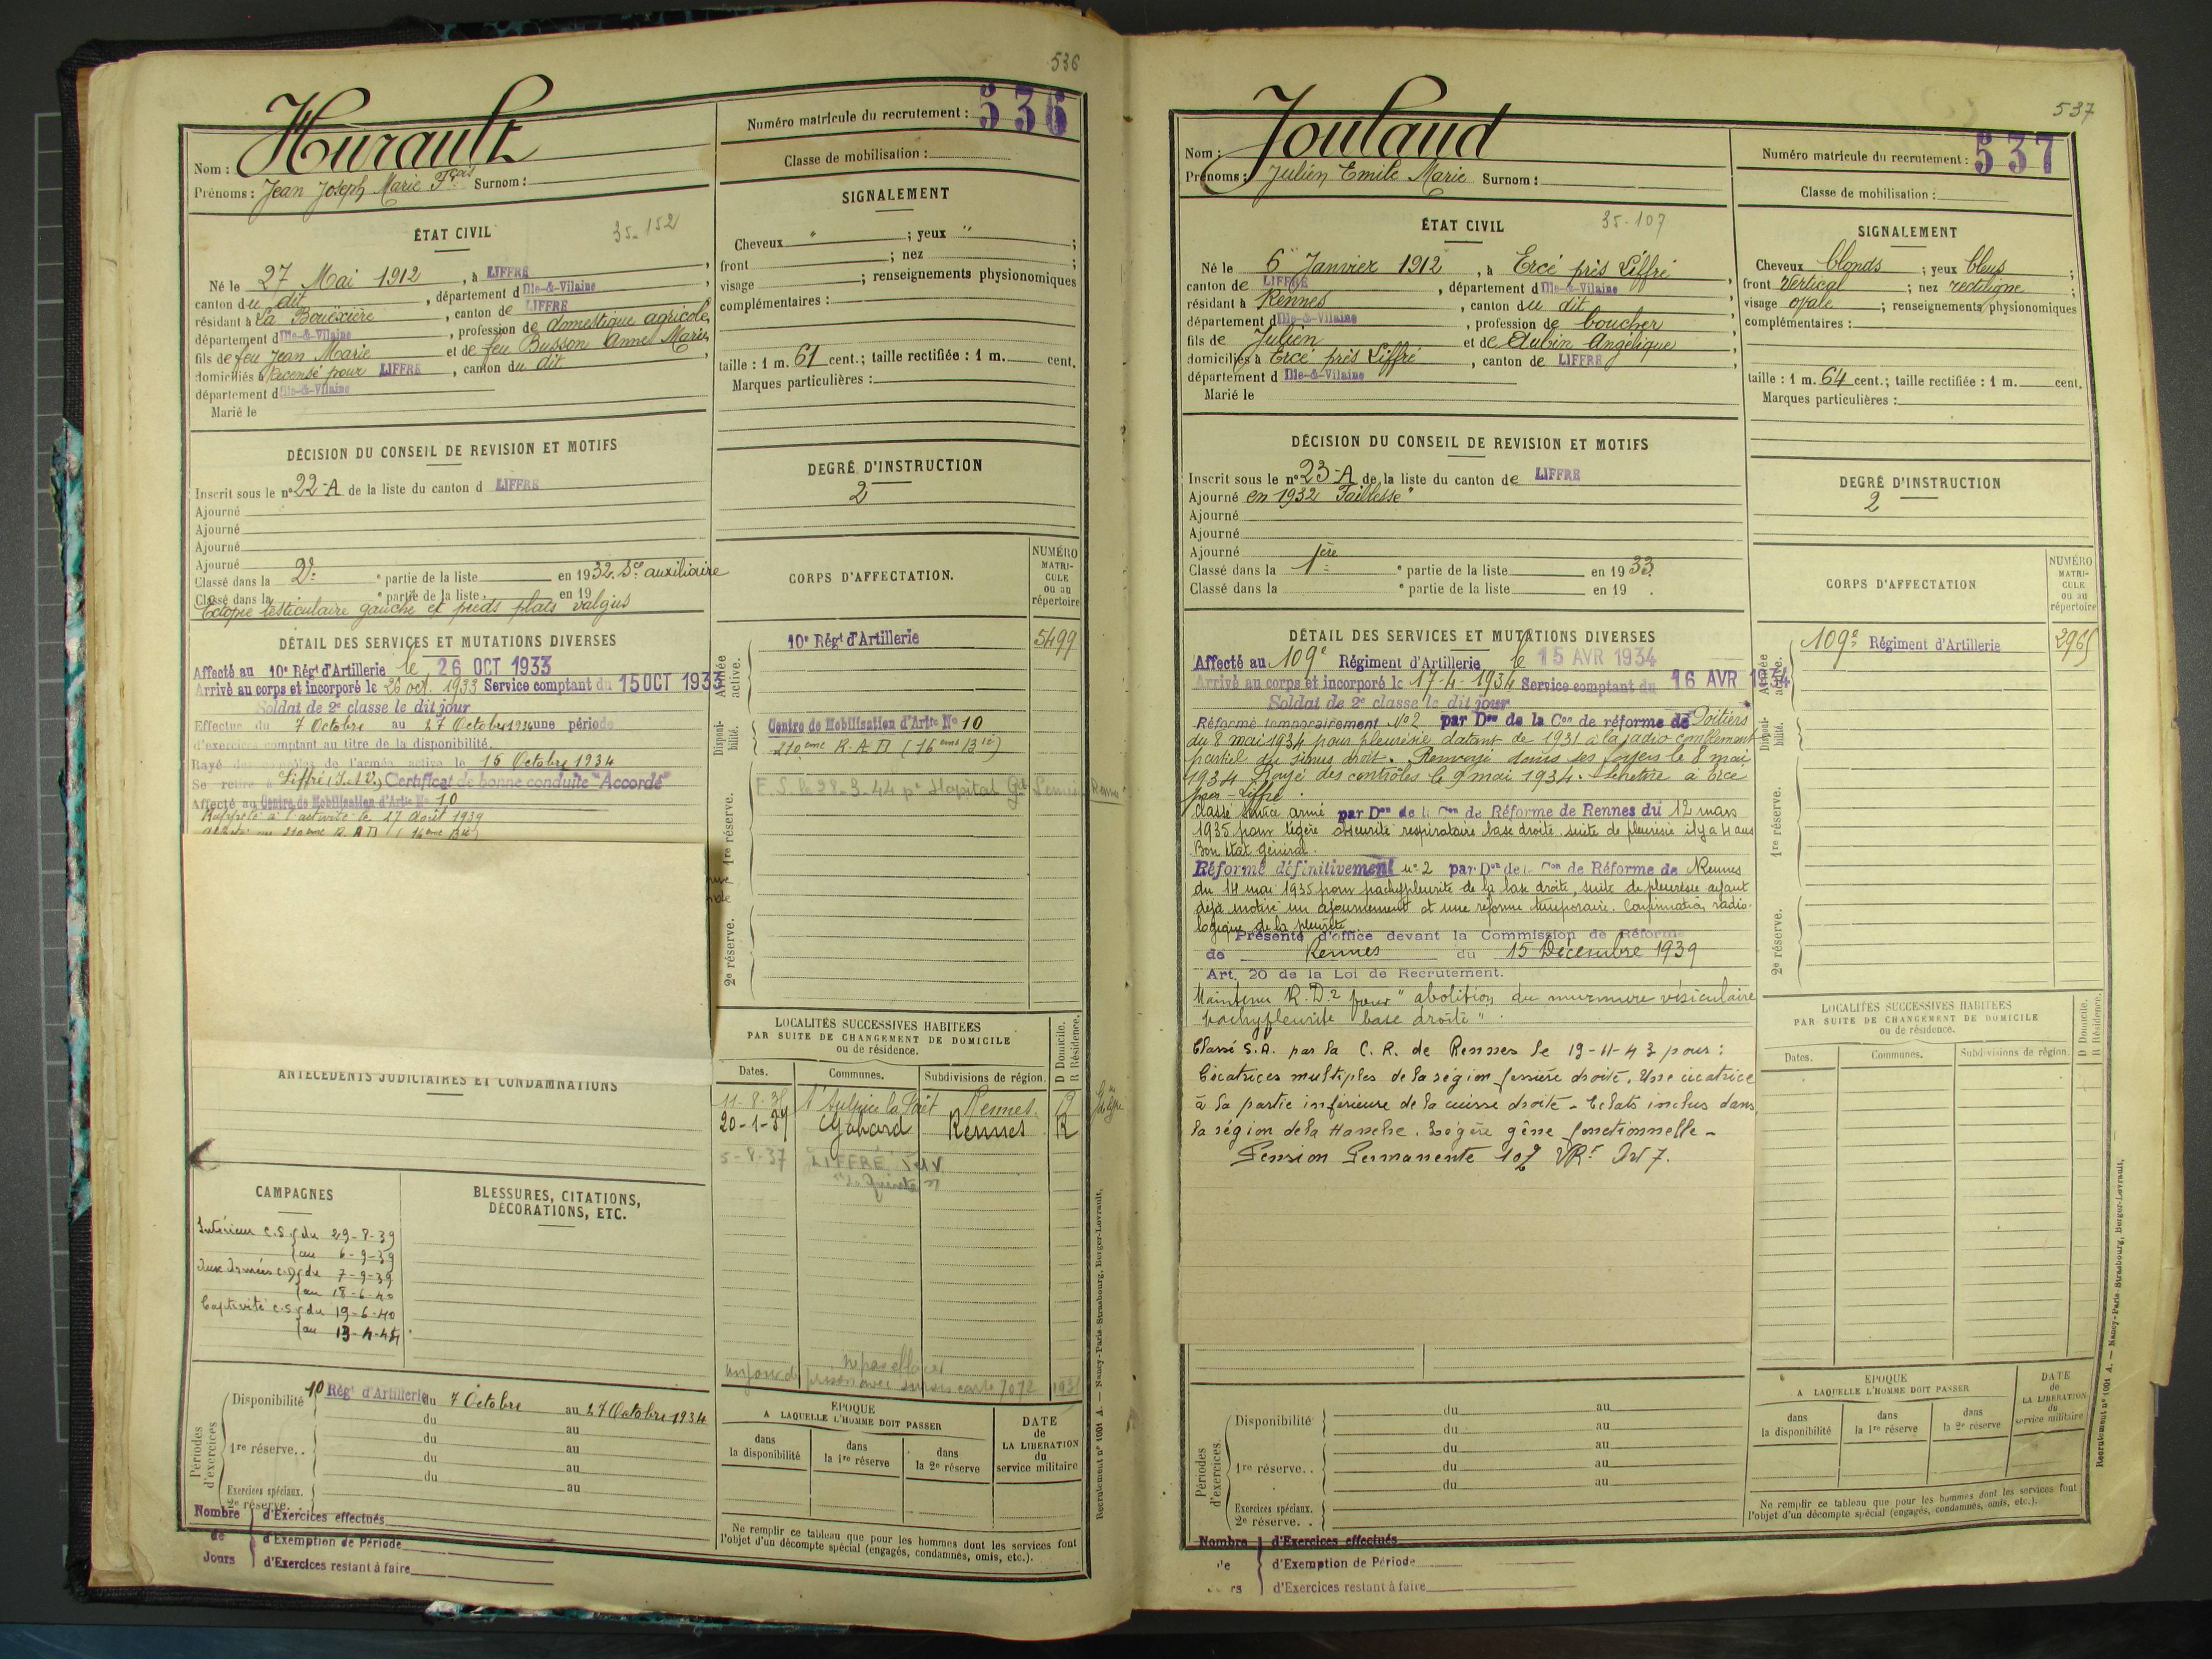 536
Hurault
Nom :
Prénoms : Jean Joseph Marie Fçois Surnom :
Numéro matricule du recrutement : 536
Classe de mobilisation :
ÉTAT CIVIL
35-152
Né le 27 Mai 1912, à LIFFRE,
canton du dit, département d Ille-&-Vilaine,
résidant à La Bouëxière, canton de LIFFRE
département d Ille-&-Vilaine, profession de domestique agricole,
fils de feu Jean Marie et de feu Busson Anne Marie,
domiciliés à Recensé pour LIFFRE, canton du dit,
département d Ille-&-Vilaine
Marié le
SIGNALEMENT
Cheveux " ; yeux " ;
front ; nez ;
visage ; renseignements physionomiques
complémentaires :
taille : 1 m. 61 cent.; taille rectifiée : 1 m. cent.
Marques particulières :
DÉCISION DU CONSEIL DE REVISION ET MOTIFS
Inscrit sous le n° 22-A de la liste du canton d LIFFRE
Ajourné
Ajourné
Ajourné
Ajourné
Classé dans la 2e ° partie de la liste en 1932. Sce auxiliaire
Classé dans la ° partie de la liste. en 19
Ectopie testiculaire gauche et pieds plats valgus
DEGRÉ D'INSTRUCTION
2
CORPS D'AFFECTATION.
NUMÉRO MATRI-CULE ou au répertoire
DÉTAIL DES SERVICES ET MUTATIONS DIVERSES
Affecté au 10e Régt d'Artillerie le 26 OCT 1933
Arrivé au corps et incorporé le 26 oct. 1933 Service comptant du 15 OCT 1933
Soldat de 2e classe le dit jour
Effectue du 7 Octobre au 27 Octobre 1934 une période
d'exercice comptant au titre de la disponibilité.
Rayé des contrôles de l'armée active le 15 Octobre 1934
Se retire à Liffré (I.&V.) Certificat de bonne conduite "Accordé"
Affecté au Centre de Mobilisation d'Artie No 10
Rappelé à l'activité le 27 Août 1939
210eme R.A.D (16eme Bie)
Armée active.
10e Régt d'Artillerie 5499
Disponi-bilité.
Centre de Mobilisation d'Artie No 10
210eme R.A.D (16eme Bie)
1re réserve.
E.S. le 28-3-44 pr Hopital Gl Rennes
2e réserve.
LOCALITÉS SUCCESSIVES HABITÉES
PAR SUITE DE CHANGEMENT DE DOMICILE
ou de résidence.
D Domicile. R Résidence.
Dates. Communes. Subdivisions de région.
Rennes
20-1-37 Gahard Rennes R
5-8-37 LIFFRÉ I&V
ANTÉCÉDENTS JUDICIAIRES ET CONDAMNATIONS
CAMPAGNES
Intérieur C.S. du 29-8-39
au 6-9-39
Aux Armées C.D du 7-9-39
au 18-6-40
Captivité C.S. du 19-6-40
au 13-4-45
BLESSURES, CITATIONS,
DÉCORATIONS, ETC.
ne pas effacer
un jour de prison avec sursis carte 7072 1931
Périodes d'exercices
Disponibilité 10 Régt d'Artillerie du 7 Octobre au 27 Octobre 1934
du au
1re réserve. . du au
du au
du au
Exercices spéciaux.
2e réserve.
Nombre de Jours
d'Exercices effectués
d'Exemption de Période
d'Exercices restant à faire
ÉPOQUE
A LAQUELLE L'HOMME DOIT PASSER
dans la disponibilité
dans la 1re réserve
dans la 2e réserve
DATE de LA LIBÉRATION du service militaire
Ne remplir ce tableau que pour les hommes dont les services font
l'objet d'un décompte spécial (engagés, condamnés, omis, etc.).
Recrutement n° 1001 A. — Nancy-Paris-Strasbourg, Berger-Levrault.
537
Joulaud
Nom :
Prénoms : Julien Emile Marie Surnom :
Numéro matricule du recrutement : 537
Classe de mobilisation :
ÉTAT CIVIL
35-107
Né le 6 Janvier 1912, à Ercé près Liffré,
canton de LIFFRE, département d Ille-&-Vilaine,
résidant à Rennes, canton du dit,
département d Ille-&-Vilaine, profession de boucher,
fils de Julien et de Aubin Angélique,
domiciliés à Ercé près Liffré, canton de LIFFRE,
département d Ille-&-Vilaine
Marié le
SIGNALEMENT
Cheveux blonds ; yeux bleus ;
front vertical ; nez rectiligne ;
visage ovale ; renseignements physionomiques
complémentaires :
taille : 1 m. 64 cent.; taille rectifiée : 1 m. cent.
Marques particulières :
DÉCISION DU CONSEIL DE REVISION ET MOTIFS
Inscrit sous le n° 23-A de la liste du canton de LIFFRE
Ajourné en 1932 Faiblesse"
Ajourné
Ajourné
Ajourné
Classé dans la 1ère ° partie de la liste en 1933.
Classé dans la ° partie de la liste en 19 .
DEGRÉ D'INSTRUCTION
2
CORPS D'AFFECTATION
NUMÉRO MATRI-CULE ou au répertoire
DÉTAIL DES SERVICES ET MUTATIONS DIVERSES
Affecté au 109e Régiment d'Artillerie le 15 AVR 1934
Arrivé au corps et incorporé le 17-4-1934 Service comptant du 16 AVR 1934
Soldat de 2e classe le dit jour
Réformé temporairement No2 par Don de la Con de réforme de Poitiers
du 8 mai 1934 pour pleurésie datant de 1931 à la radio comblement
partiel du sinus droit. Renvoyé dans ses foyers le 8 mai
1934 Rayé des contrôles le 9 mai 1934. Se retire à Ercé
près-Liffré.
Classé service armé par Don de la Con de Réforme de Rennes du 12 mars
1935 pour légère obscurité respiratoire base droite suite de pleurésie il y a 4 ans
Bon état général.
Réformé définitivement n°2 par Don de la Con de Réforme de Rennes
du 14 mai 1935 pour pachypleurite de la base droite, suite de pleurésie ayant
déjà motivé un ajournement et une réforme temporaire. Confirmation radio-
logique de la pleurite.
Présenté d'office devant la Commission de Réforme
de Rennes du 15 Décembre 1939
Art. 20 de la Loi de Recrutement.
Maintenu R.D.2 pour "abolition du murmure vésiculaire
pachypleurite base droite".
Classé S.A. par la C.R. de Rennes le 19-11-43 pour :
Cicatrices multiples de la région fessière droite. Une cicatrice
à la partie inférieure de la cuisse droite - Eclats inclus dans
la région de la Hanche. Légère gêne fonctionnelle -
Pension Permanente 10%
Armée active.
109e Régiment d'Artillerie 2965
Disponi-bilité.
1re réserve.
2e réserve.
LOCALITÉS SUCCESSIVES HABITÉES
PAR SUITE DE CHANGEMENT DE DOMICILE
ou de résidence.
D Domicile. R Résidence.
Dates. Communes. Subdivisions de région.
Périodes d'exercices.
Disponibilité du au
du au
1re réserve. . du au
du au
du au
Exercices spéciaux.
2e réserve. .
Nombre de Jours
d'Exercices effectués
d'Exemption de Période
d'Exercices restant à faire
ÉPOQUE
A LAQUELLE L'HOMME DOIT PASSER
dans la disponibilité
dans la 1re réserve
dans la 2e réserve
DATE de LA LIBÉRATION du service militaire
Ne remplir ce tableau que pour les hommes dont les services font
l'objet d'un décompte spécial (engagés, condamnés, omis, etc.).
Recrutement n° 1001 A. — Nancy-Paris-Strasbourg, Berger-Levrault.